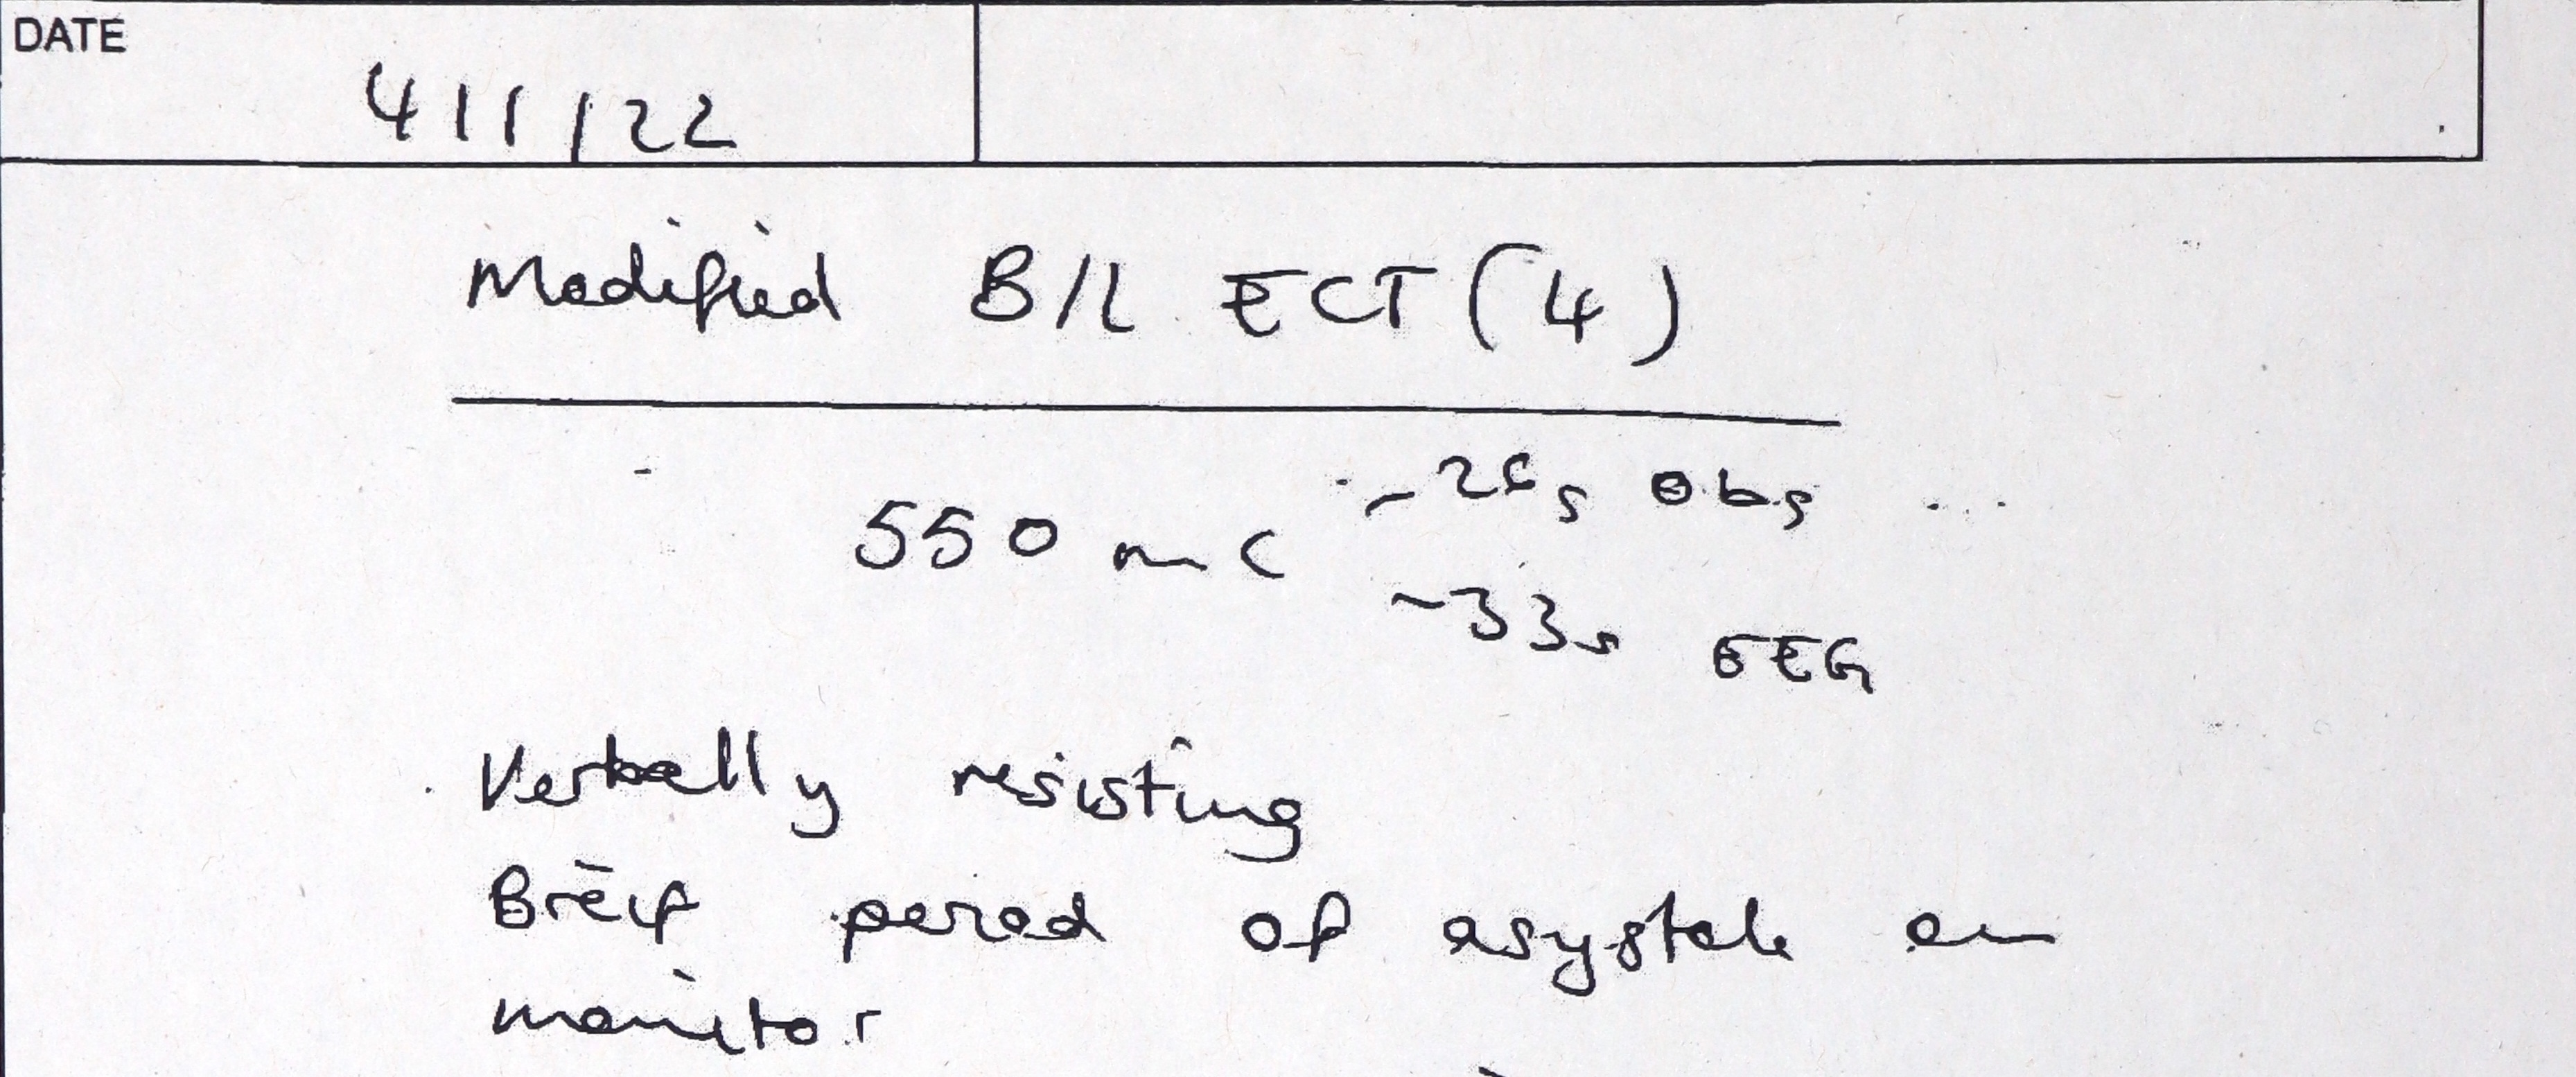 DATE
4/1/22
Modified B/L ECT (4)
~26s Obs
550 mC
~33s EEG
Verbally resisting
Breif period of asystole on
monitor